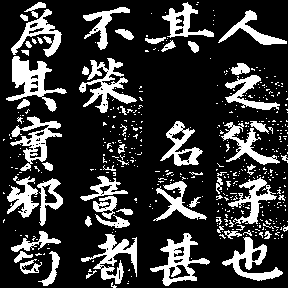 人之父子也
其名又甚
不榮意者
為其實邪苟